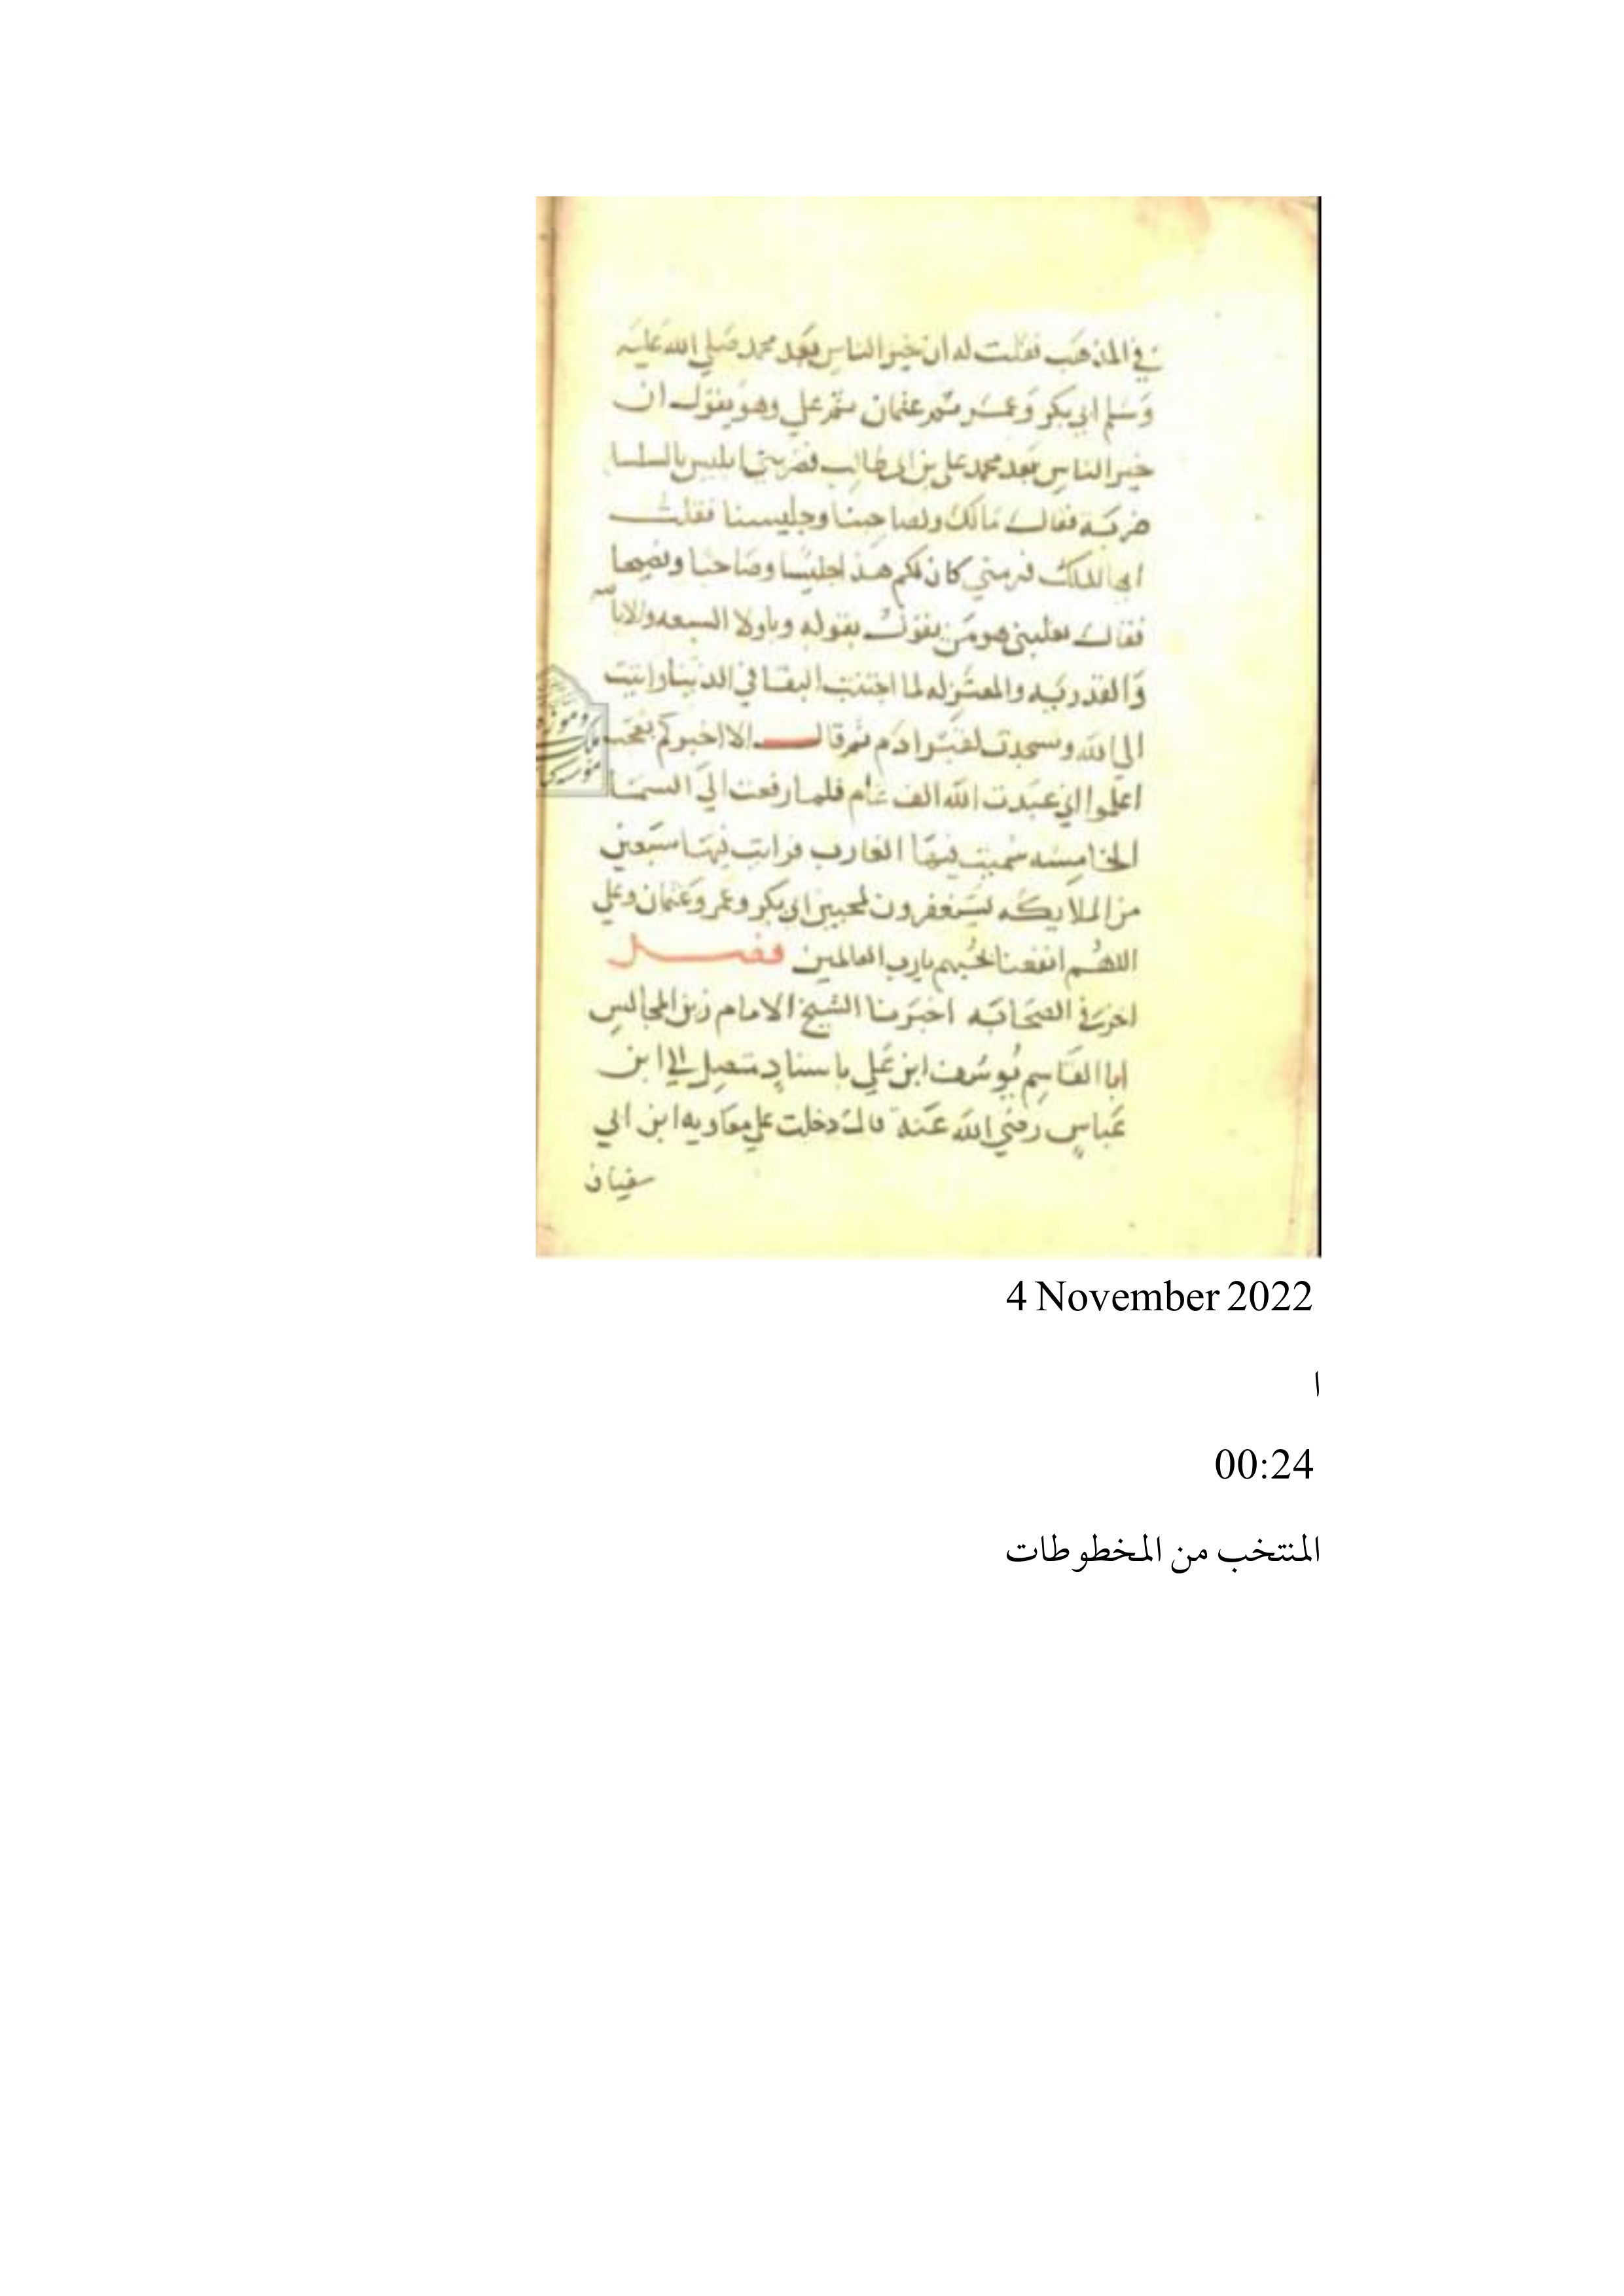 في المذهب فقلت له ان خير الناس بعد محمد صلي الله عليه
وسلم ابي بكر وعمر ثم عثمان ثم علي وهو يقول ان
خير الناس بعد محمد علي بن ابي طالب فضربني ابليس بالسلسا
ضربة فقال مالك ولصاحبنا وجليسنا فقلت
ايها الملك كان لكم هذا جليسا وصاحبا ونصيحا
فقال هو من يقول بقوله
والقدريه والمعتزله لما البقا في الدنيا
الي الله وسجدت لقبر ادم ثم قال الا اخبركم بعجب
اعلموا اني عبدت الله الف عام فلما رفعت الي السما
الخامسه سميت فيها فرايت فيها سبعين
من الملايكه يستغفرون لمحبين ابي بكر وعمر وعثمان وعلي
اللهم انفعنا بحبهم يا رب العالمين فصل
اخر في الصحابه اخبرنا الشيخ الامام زين المجالس
ابا القاسم يوسف ابن علي باسناد متصل الي ابن
عباس رضي الله عنه قال دخلت علي معاويه ابن ابي
سفيان
4 November 2022
ا
00:24
المنتخب من المخطوطات